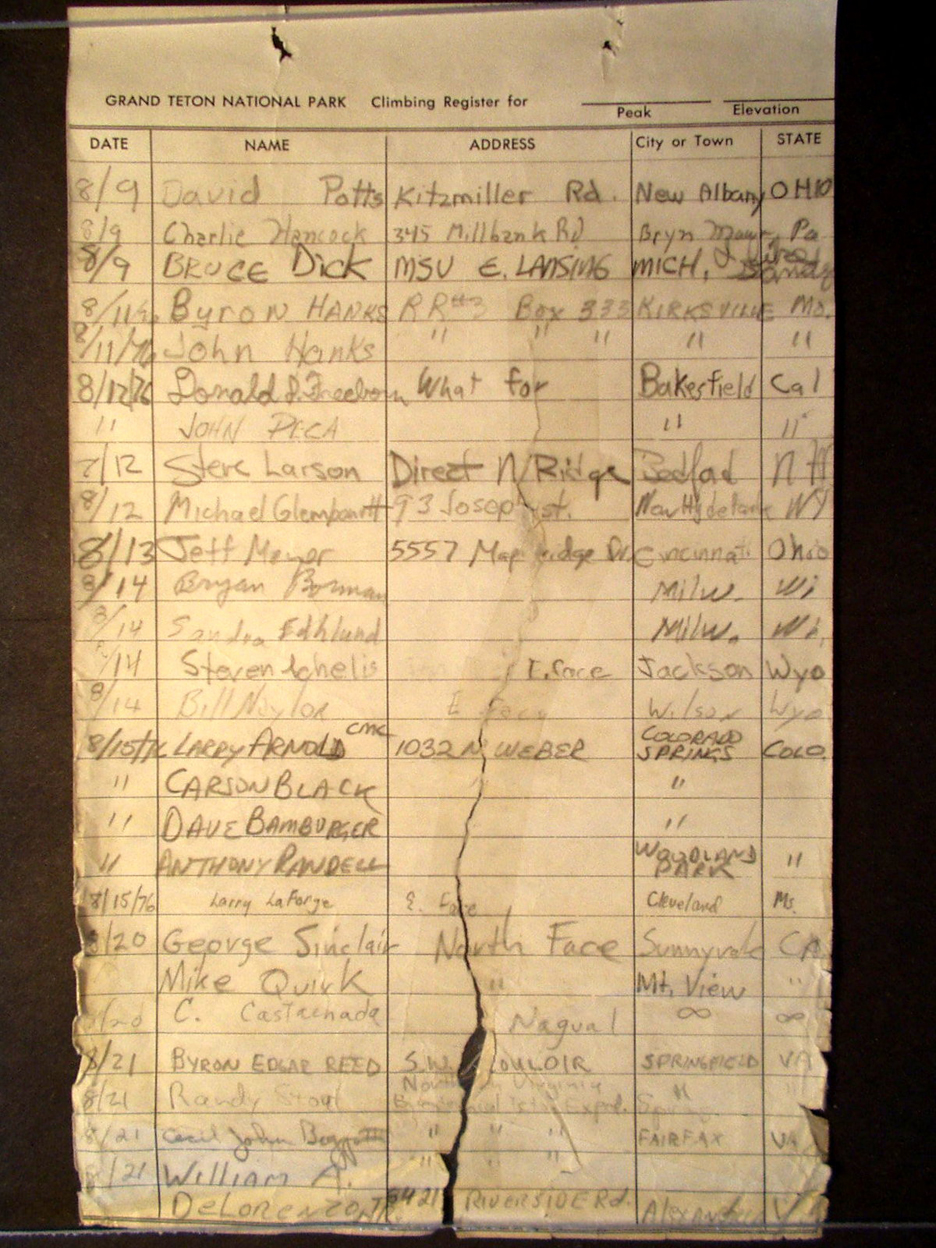 GRAND TETON NATIONAL PARK Climbing Register for
Peak Elevation
DATE NAME ADDRESS City or Town STATE
8/9 David Potts Kitzmiller Rd. New Albany OHIO
8/9 Charlie Hancock 345 Millbank Rd Bryn Mawr, Pa
8/9 BRUCE DICK MSU E. LANSING MICH.
8/11 Byron HANKS RR#3 Box 333 KIRKSVILLE Mo.
8/11/76 John Hanks " " " " "
8/12/76 Donald J. Freeborn What for Bakersfield Cal
" JOHN DECA " "
7/12 Steve Larson Direct N Ridge Bedford NH
8/12 Michael 93 Joseph st. NY
8/13 Jeff Meyor 5557 Ridge Dr. Cincinnati Ohio
8/14 Bryan Milw. Wi
8/14 Sandra Edhlund Milw. Wi.
8/14 Steven E. Face Jackson Wyo
8/14 Bill Naylor E Face Wilson Wyo
8/15/76 LARRY ARNOLD CMC 1032 N WEBER COLORADO SPRINGS COLO.
" CARSON BLACK " "
" DAVE BAMBURGER "
" ANTHONY RANDELL WOODLAND PARK "
8/15/76 Larry LaForge E. Face Cleveland Ms.
8/20 George Sinclair North Face Sunnyvale CA
Mike Quirk " Mt. View "
8/20 C. Castaenada Nagual ∞ ∞
8/21 BYRON EDGAR REED S.W. COULOIR SPRINGFIELD VA
8/21 Randy Stout Northern Virginia " "
Bicentennial Exped.
8/21 Cecil John " " " FAIRFAX VA
8/21 William A. " "
DeLorenzo JR. 8421 RIVERSIDE Rd. Alexandria VA